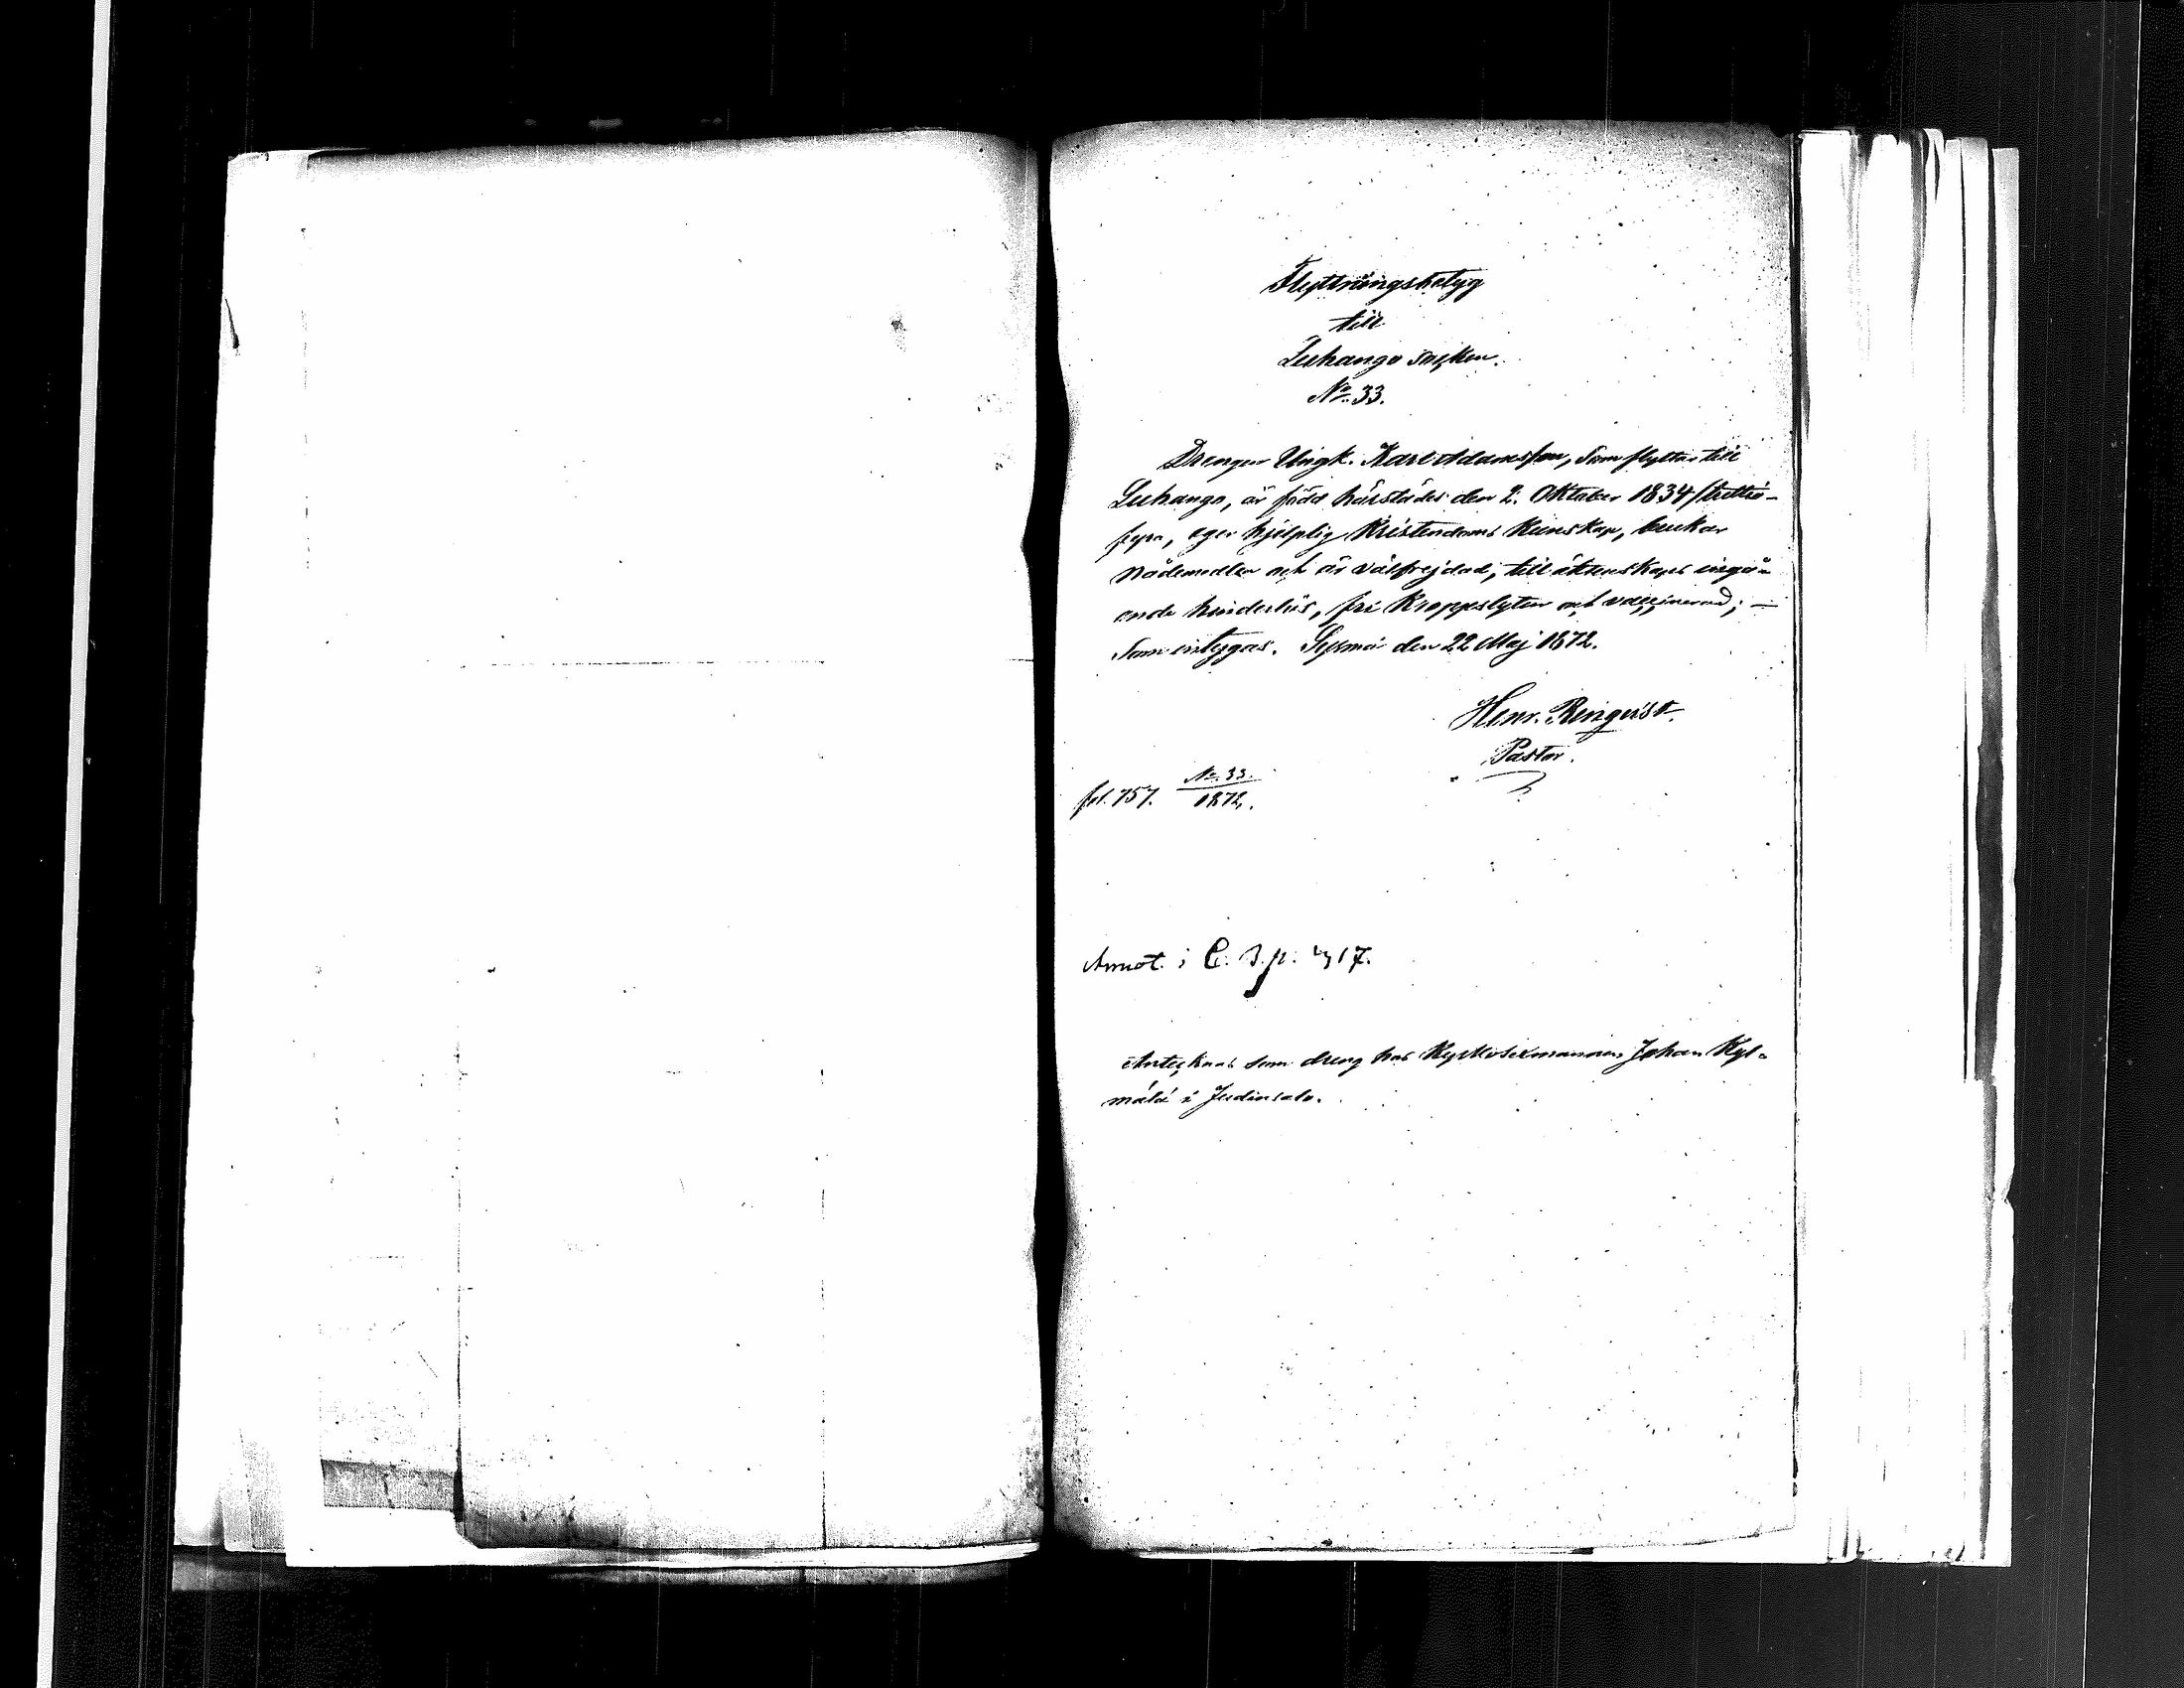 Flyttningsbetyg
till
Luhango socken.
No 33.
Drengen Ungk. Karl Adamsson, som flyttar till
Luhango, är född härstädes den 2. Oktober 1834 /trettio-
fyra, eger hjelplig Kristendoms Kunskap, brukar
Nådemedlen och är välfrejdad, till äktenskaps ingå-
ende hinderlös, fri Kroppslyten och vaccinerad; —
Som intygas. Sysmä den 22 Maj 1872.
Henr. Renqvist.
Pastor.
fol. 757. No. 33. / 1872.
Annot. i C. B. p. 417.
Antecknas som dreng hos Kyrkosexmannen Johan Kyl-
mälä i Judinsalo.